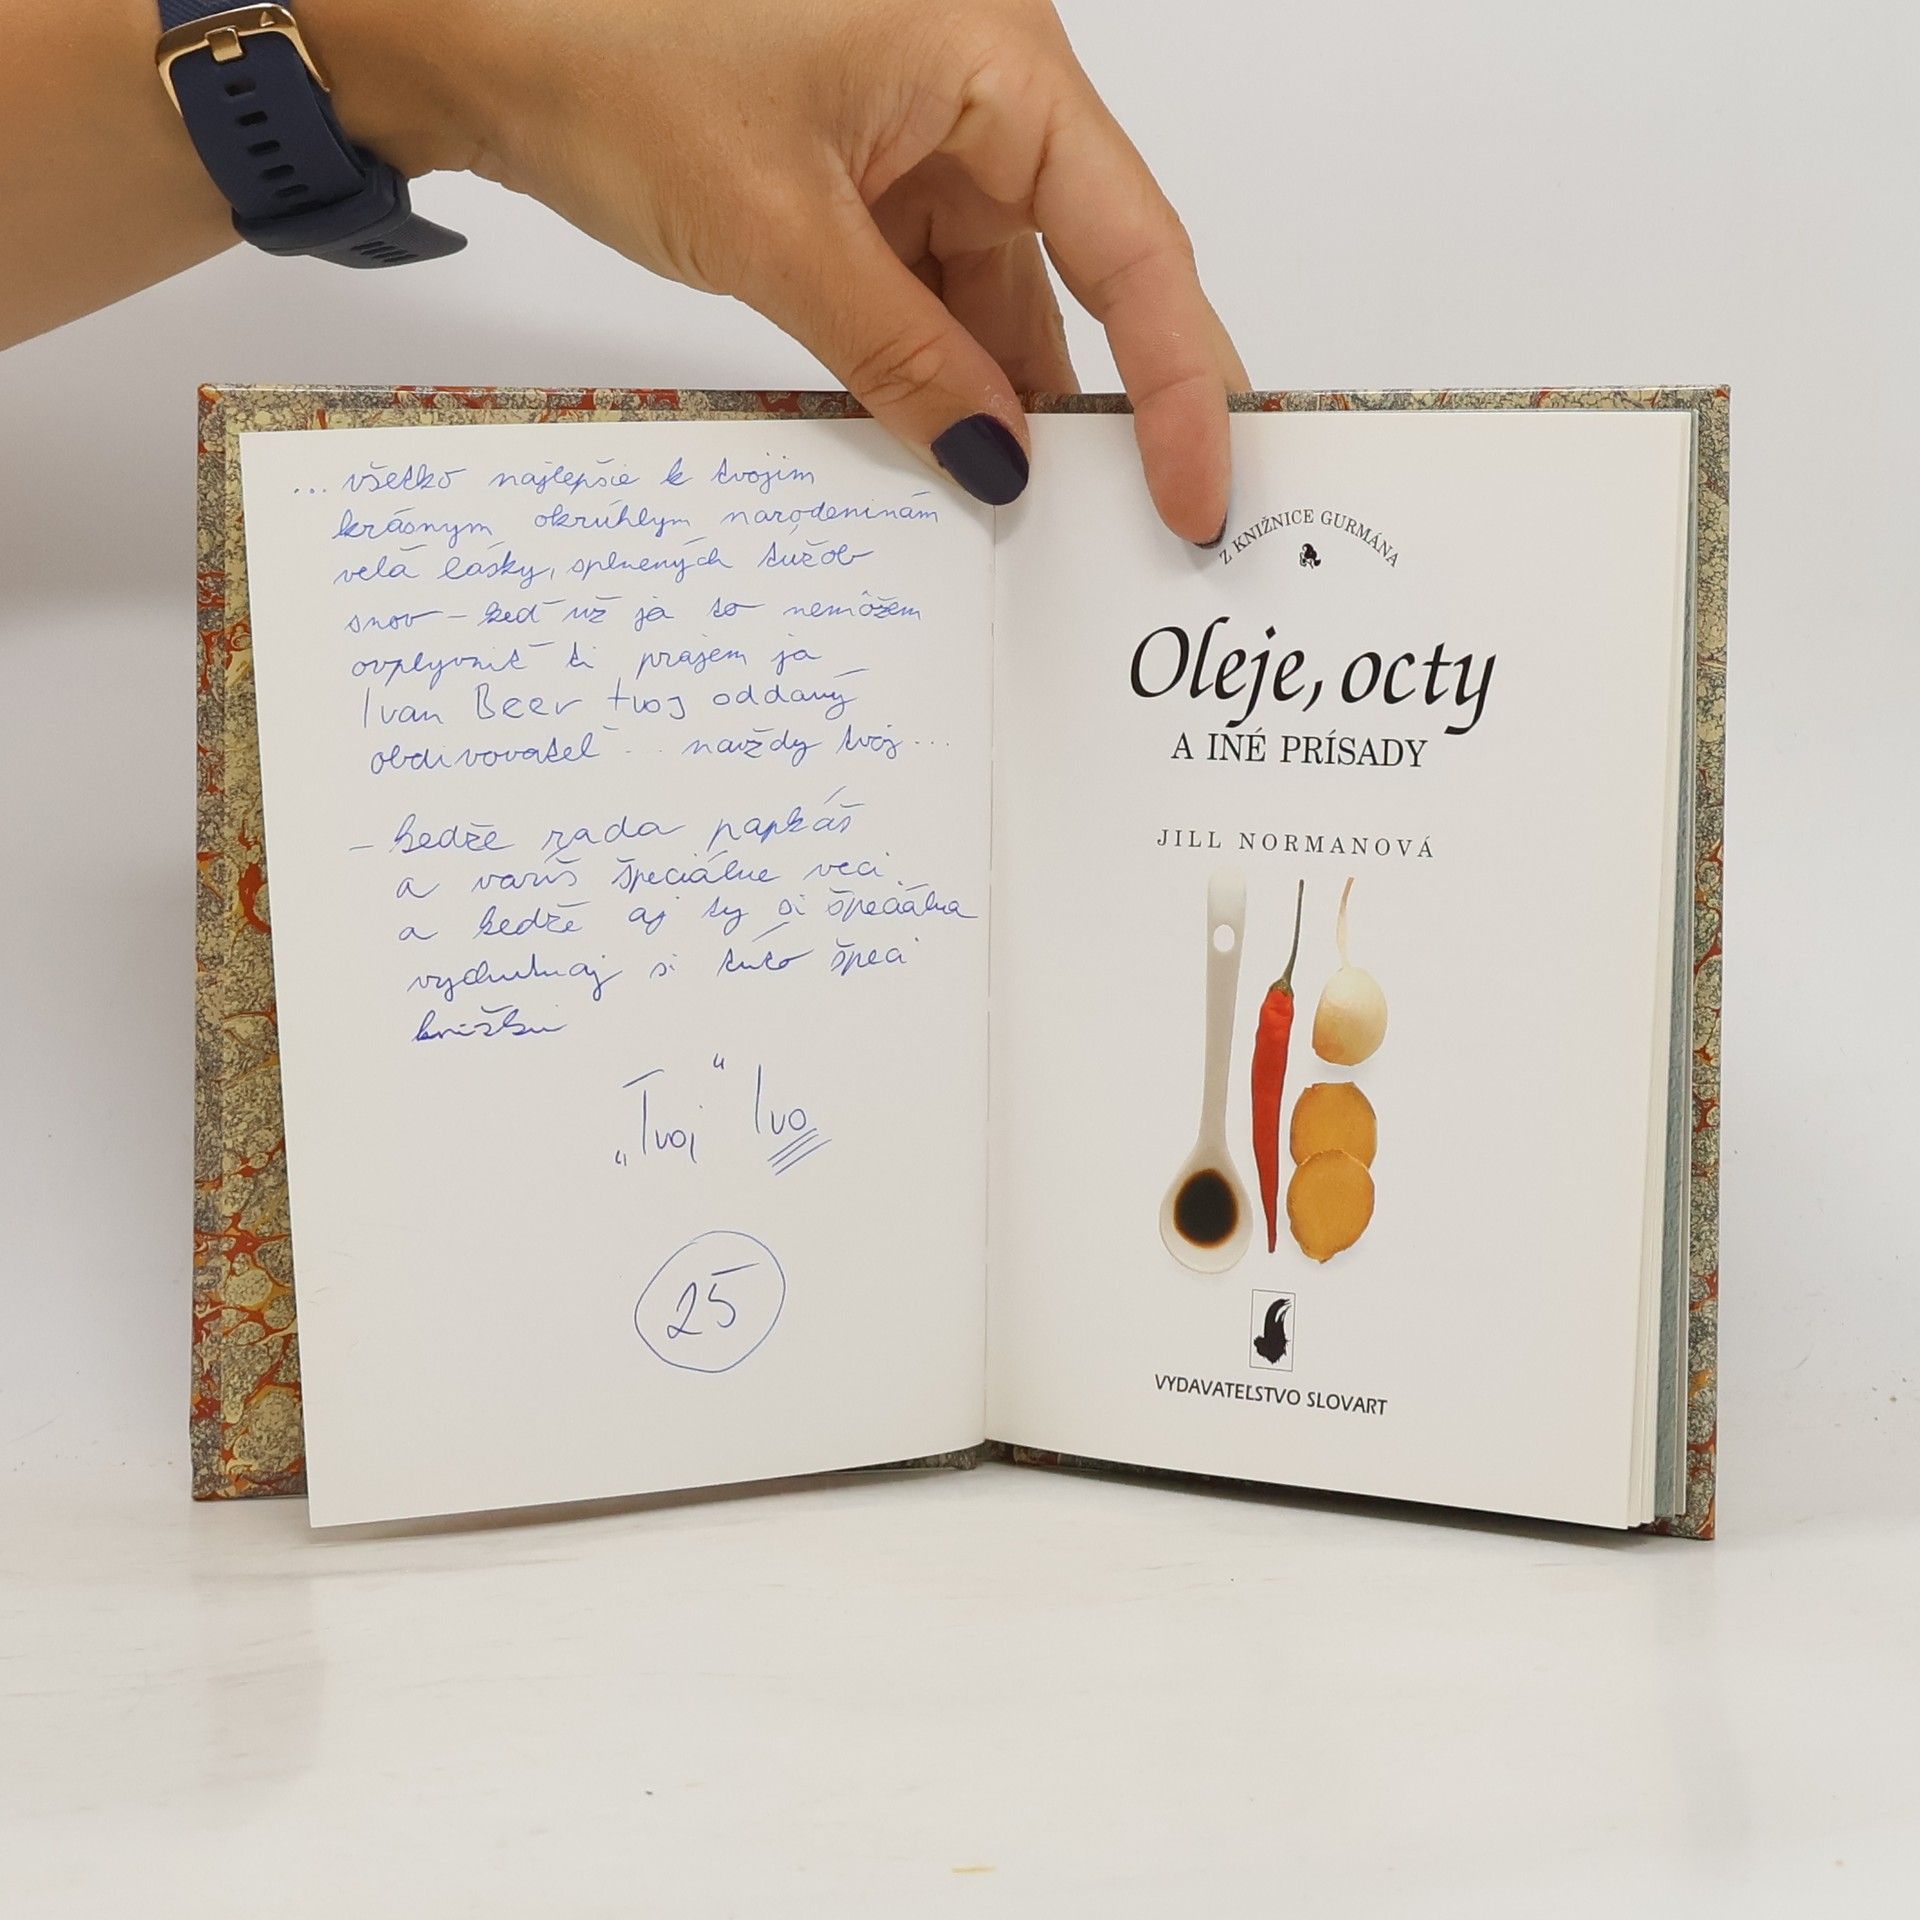 ... všetko najlepšie k tvojim
krásnym okrúhlym narodeninám
veľa lásky, splnených túžob
snov – keď už ja to nemôžem
ovplyvniť ti prajem ja
Ivan Beer tvoj oddaný
obdivovateľ ... navždy tvoj ...
– keďže rada papkáš
a varíš špeciálne veci
a keďže aj ty si špeciálna
vychutnaj si túto špeci
knižku
„Tvoj“ Ivo
25
Z KNIŽNICE GURMÁNA
Oleje, octy
A INÉ PRÍSADY
JILL NORMANOVÁ
VYDAVATEĽSTVO SLOVART